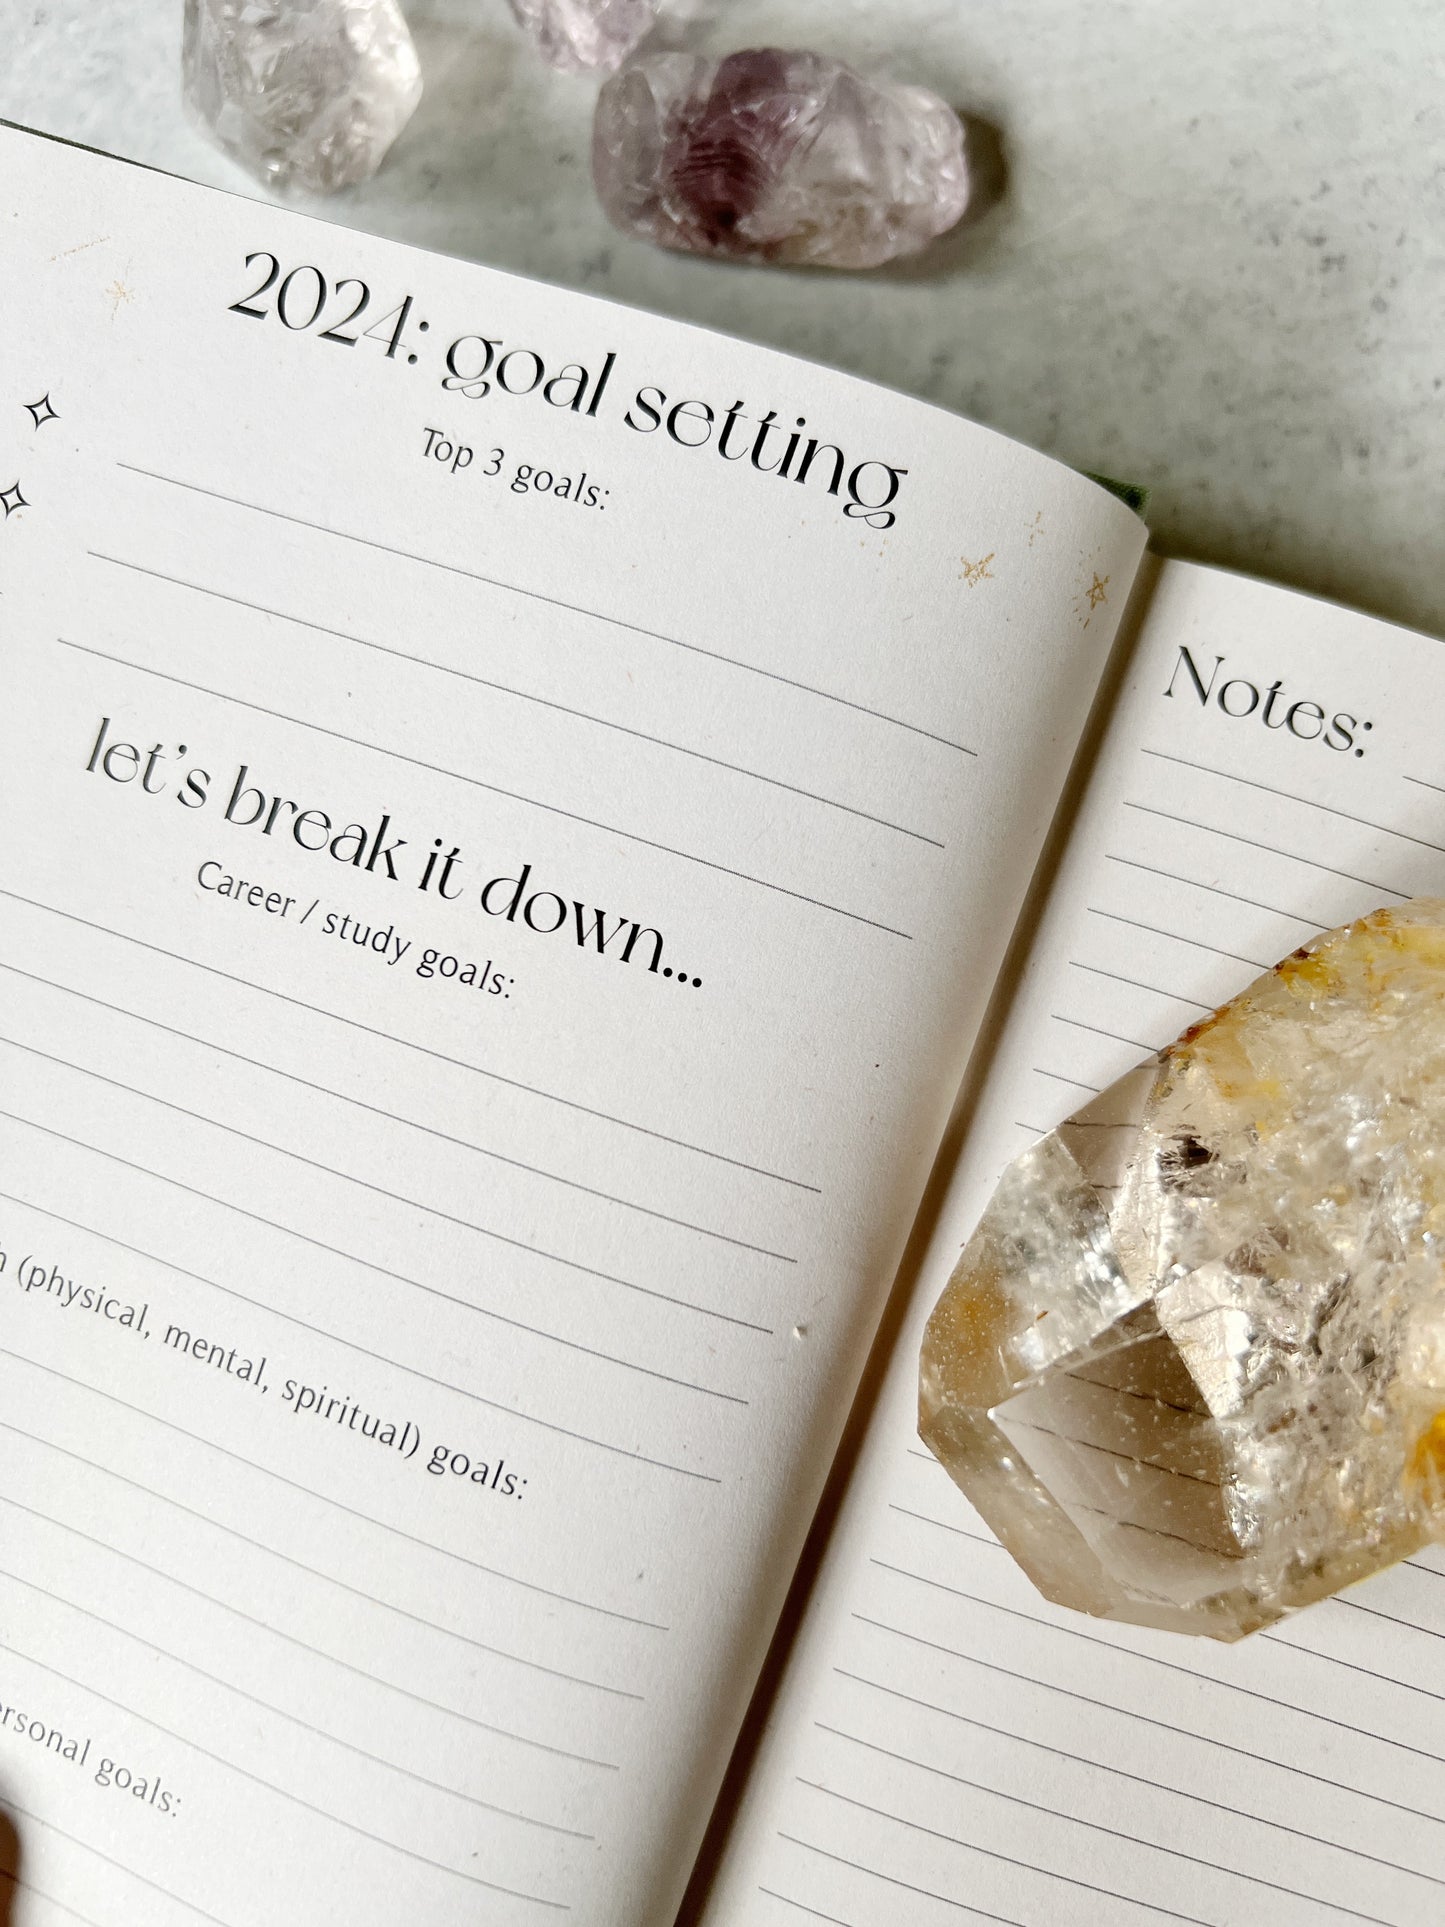 2024: goal setting
Top 3 goals:
let's break it down...
Career / study goals:
(physical, mental, spiritual) goals:
goals:
Notes: